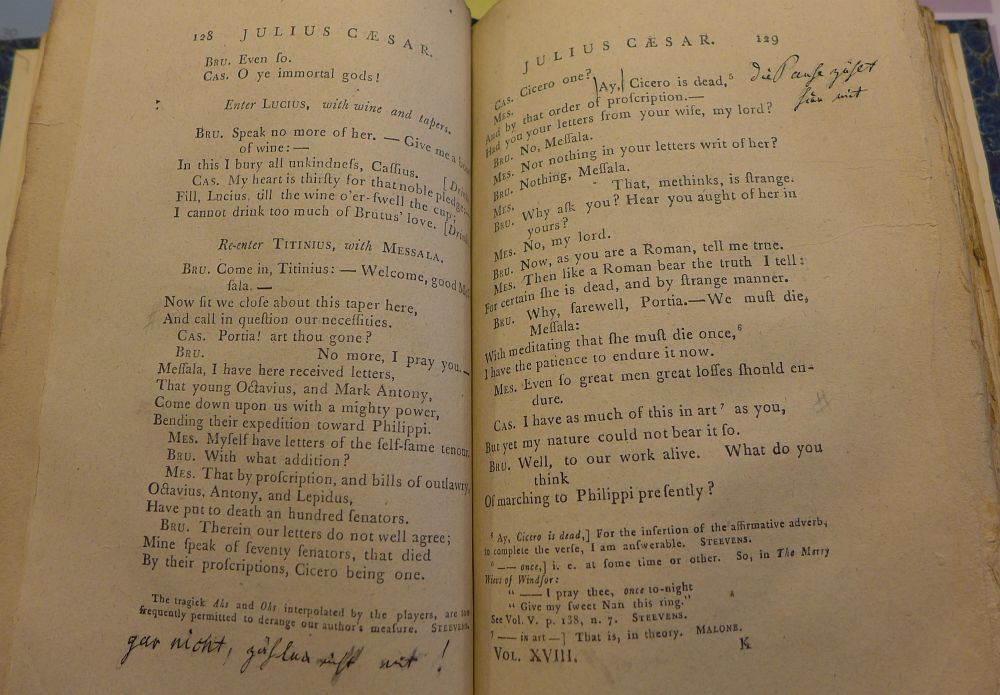 128 JULIUS CÆSAR.
BRU. Even ſo.
CAS. O ye immortal gods!
Enter LUCIUS, with wine and tapers.
BRU. Speak no more of her. — Give me a
of wine: —
In this I bury all unkindneſs, Caſſius. [Dri
CAS. My heart is thirſty for that noble pledge:—
Fill, Lucius, till the wine o'er-ſwell the cup;
I cannot drink too much of Brutus' love. [Dri
Re-enter TITINIUS, with MESSALA.
BRU. Come in, Titinius: — Welcome, good
ſala. —
Now ſit we cloſe about this taper here,
And call in queſtion our neceſſities.
CAS. Portia! art thou gone?
BRU. No more, I pray you.—
Meſſala, I have here received letters,
That young Octavius, and Mark Antony,
Come down upon us with a mighty power,
Bending their expedition toward Philippi.
MES. Myſelf have letters of the ſelf-ſame tenour.
BRU. With what addition?
MES. That by proſcription, and bills of outlawry,
Octavius, Antony, and Lepidus,
Have put to death an hundred ſenators.
BRU. Therein our letters do not well agree;
Mine ſpeak of ſeventy ſenators, that died
By their proſcriptions, Cicero being one.
The tragick Ahs and Ohs interpolated by the players, are too
frequently permitted to derange our author's meaſure. STEEVENS.
gar nicht, zählen nicht mit!
JULIUS CÆSAR. 129
CAS. Cicero one?
MES. Ay, Cicero is dead,⁵ die Pause zählt
And by that order of proſcription.— hier mit
Had you your letters from your wife, my lord?
BRU. No, Meſſala.
MES. Nor nothing in your letters writ of her?
BRU. Nothing, Meſſala.
MES. That, methinks, is ſtrange.
BRU. Why aſk you? Hear you aught of her in
yours?
MES. No, my lord.
BRU. Now, as you are a Roman, tell me true.
MES. Then like a Roman bear the truth I tell:
For certain ſhe is dead, and by ſtrange manner.
BRU. Why, farewell, Portia.—We muſt die,
Meſſala:
With meditating that ſhe muſt die once,⁶
I have the patience to endure it now.
MES. Even ſo great men great loſſes ſhould en-
dure.
CAS. I have as much of this in art⁷ as you,
But yet my nature could not bear it ſo.
BRU. Well, to our work alive. What do you
think
Of marching to Philippi preſently?
⁵ Ay, Cicero is dead,] For the inſertion of the affirmative adverb,
to complete the verſe, I am anſwerable. STEEVENS.
⁶ — once,] i. e. at ſome time or other. So, in The Merry
Wives of Windſor:
"— I pray thee, once to-night
"Give my ſweet Nan this ring."
See Vol. V. p. 138, n. 7. STEEVENS.
⁷ — in art —] That is, in theory. MALONE.
VOL. XVIII. K